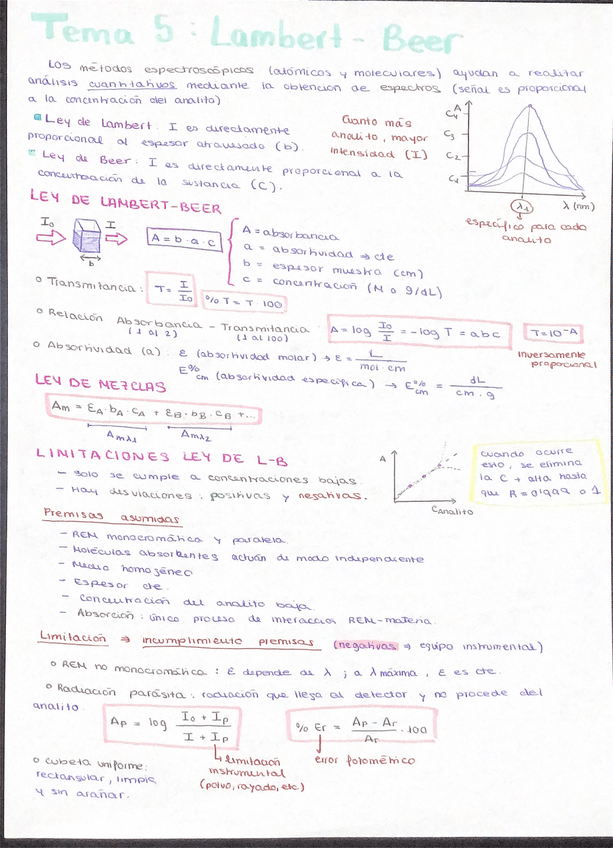 Tema 5 : Lambert - Beer
Los métodos espectroscópicos (atómicos y moleculares) ayudan a realizar
análisis cuantitativos mediante la obtención de espectros (señal es proporcional
a la concentración del analito)
Ley de Lambert : I es directamente
proporcional al espesor atravesado (b).
Ley de Beer : I es directamente proporcional a la
concentración de la sustancia (C).
Cuanto más
analito, mayor
intensidad (I)
A
C4
C3
C2
C1
λ1
λ (nm)
específico para cada
analito
LEY DE LAMBERT-BEER
I0
I
b
A = b · a · c
A = absorbancia
a = absortividad ⇒ cte
b = espesor muestra (cm)
c = concentración (M o g/dL)
Transmitancia : T = I / I0
% T = T · 100
Relación Absorbancia - Transmitancia : A = log I0 / I = - log T = abc
(1 al 2)
(1 al 100)
T = 10^-A
inversamente
proporcional
Absortividad (a) : ε (absortividad molar) → ε = L / mol · cm
E% cm (absortividad específica) → E% cm = dL / cm · g
LEY DE MEZCLAS
Am = εA · bA · CA + εB · bB · CB + ...
Amλ1
Amλ2
LIMITACIONES LEY DE L-B
- Solo se cumple a concentraciones bajas.
- Hay desviaciones : positivas y negativas.
A
CAnalito
cuando ocurre
esto, se elimina
la C + alta hasta
que R = 0'999 o 1
Premisas asumidas
- REM monocromática y paralela.
- Moléculas absorbentes actúan de modo independiente
- Medio homogéneo
- Espesor cte.
- Concentración del analito baja.
- Absorción : único proceso de interacción REM-materia.
Limitación ⇒ incumplimiento premisas (negativas ⇒ equipo instrumental)
REM no monocromática : ε depende de λ ; a λ máxima, ε es cte.
Radiación parásita : radiación que llega al detector y no procede del
analito.
Ap = log I0 + Ip / I + Ip
% Er = Ap - Ar / Ar · 100
limitación
instrumental
(polvo, rayado, etc.)
error fotométrico
cubeta uniforme:
rectangular, limpia
y sin arañar.